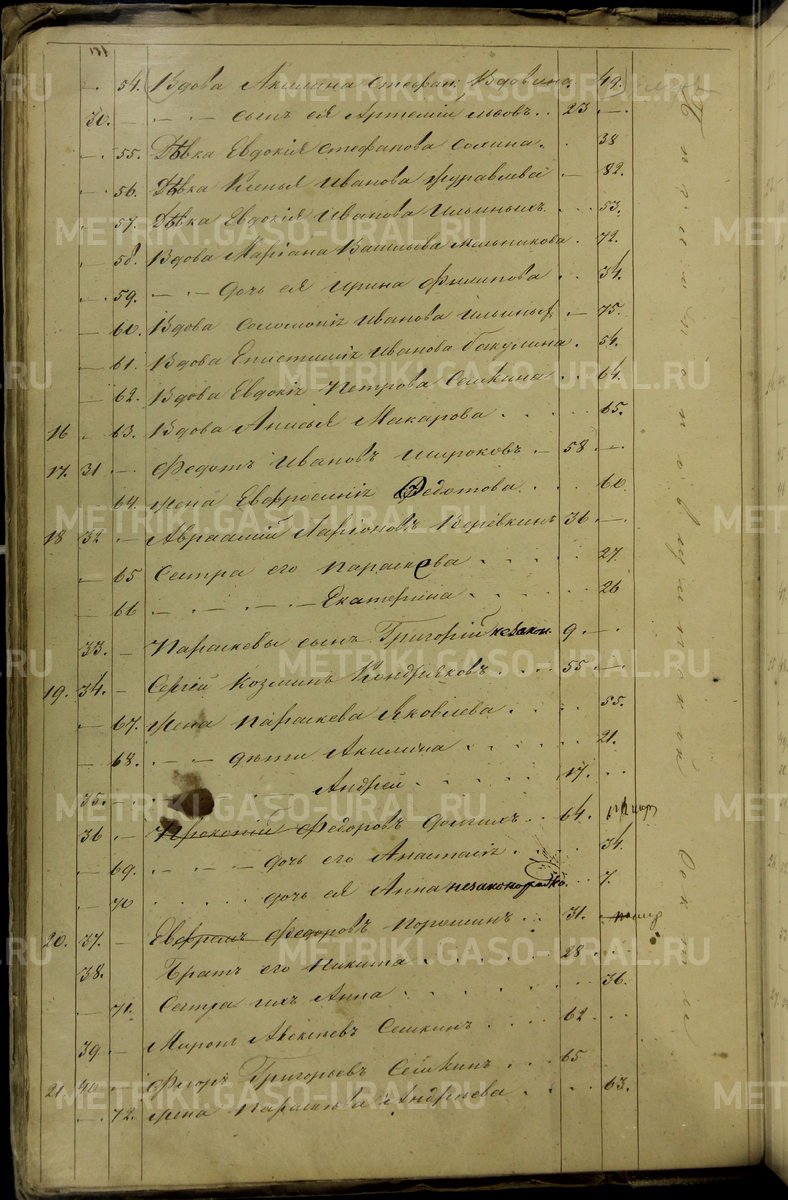 54. Вдова Акилина Стефан. Вдовина. 49.
30. — — — сынъ ея Артемій Львовъ . . 23 —
— 55. Дѣвка Евдокія Стефанова Сомина . . 38
— 56. Дѣвка Ксенья Иванова Журавлева — 82.
— 57. Дѣвка Евдокія Иванова Ильиныхъ . . . 53.
— 58. Вдова Маріана Васильева Мельникова . 72.
— 59. — — дочь ея Ирина Филипова . . 34.
— 60. Вдова Соломонія Иванова — 75.
— 61. Вдова Епистимія Иванова Бакулина . 54.
— 62. Вдова Евдокія Петрова Сешкина . . 64.
16 — 63. Вдова Анисья Макарова . . . . . 65.
17. 31 — Федотъ Ивановъ Широковъ — 58 —
64. жена Евфросинія Федотова . . . 60.
18 32 — Авраамій Ларіоновъ Веревкинъ 36 —
— 65 Сестра его Параскева . . . . . 27.
— 66 — — — — Екатерина . . . . . 26
33. — Параскевы сынъ Григорій незакон. 9. —
19. 34. — Сергѣй Козминъ Кондраковъ . . . . 55 —
— 67. жена Параскева Яковлева . . . . 55.
— 68. — — дѣти Акилина . . . . . . 21.
35. — Андрей . . . . . . 17. . .
36 — Федоровъ Долгихъ . . 64. умер
— 69. — — — дочь его Анастасія . . . . 34.
— 70 . . . . . дочь ея Анна незаконорож. 7.
20. 37. — Федоровъ Порошинъ . . . 31. помер
38. Братъ его Никита . . . . . . 28 . .
— 71. Сестра ихъ Анна . . . . . . . 36.
39 — Миронъ Алексѣевъ Сешкинъ . . . . 62 . . .
21. 40 — Флоръ Григорьевъ Сешкинъ . . . 65
— 72. жена Параскева Андреева . . . . 63.